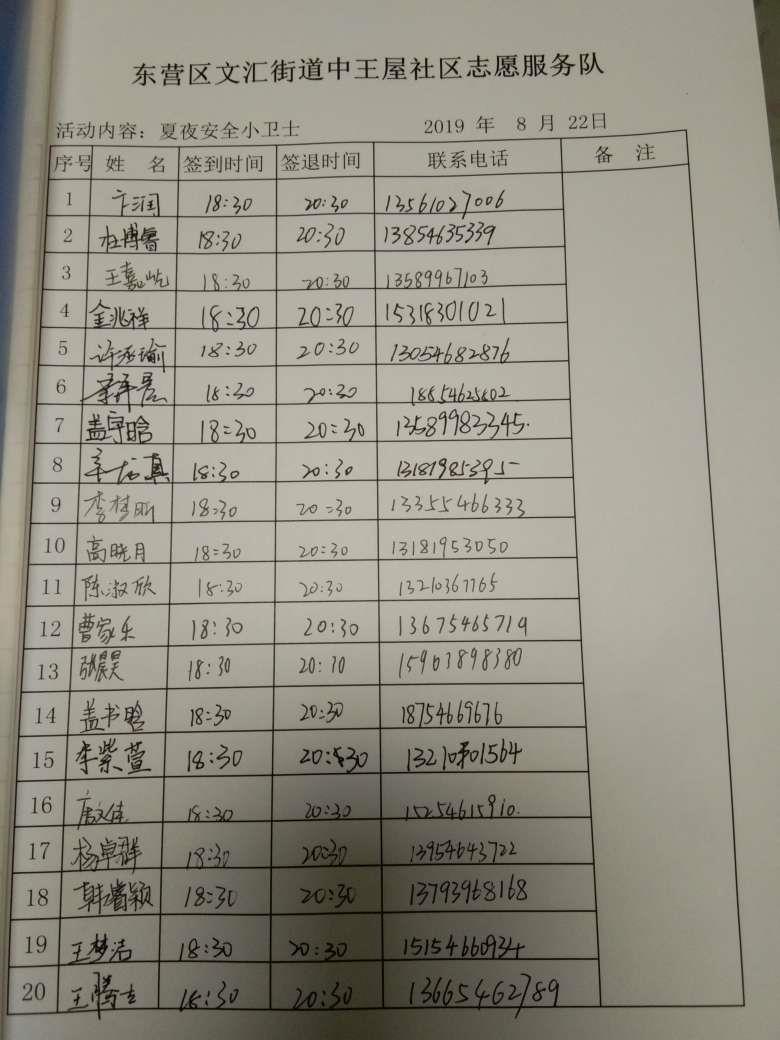 东营区文汇街道中王屋社区志愿服务队
活动内容：夏夜安全小卫士 2019 年 8 月 22日
序号 姓 名 签到时间 签退时间 联系电话 备 注
1 卞润 18:30 20:30 13561027006
2 杜博睿 18:30 20:30 13854635339
3 王嘉屹 18:30 20:30 13589967103
4 金兆祥 18:30 20:30 15318301021
5 许丞瑜 18:30 20:30 13054682876
6 18:30 20:30
7 盖宇晗 18:30 20:30 13589983345
8 18:30 20:30 13181985395
9 李梦昕 18:30 20:30 13355466333
10 高晓月 18:30 20:30 13181953050
11 陈淑欣 18:30 20:30 13210367765
12 曹家乐 18:30 20:30 13675465719
13 张晨昊 18:30 20:30 15963898380
14 盖书晗 18:30 20:30 18754669676
15 李紫萱 18:30 20:30
16 唐文佳 18:30 20:30 15254615910
17 杨卓群 18:30 20:30 13954643722
18 韩睿颖 18:30 20:30 13793968168
19 王梦洁 18:30 20:30 15154660934
20 王腾 18:30 20:30 13665462789